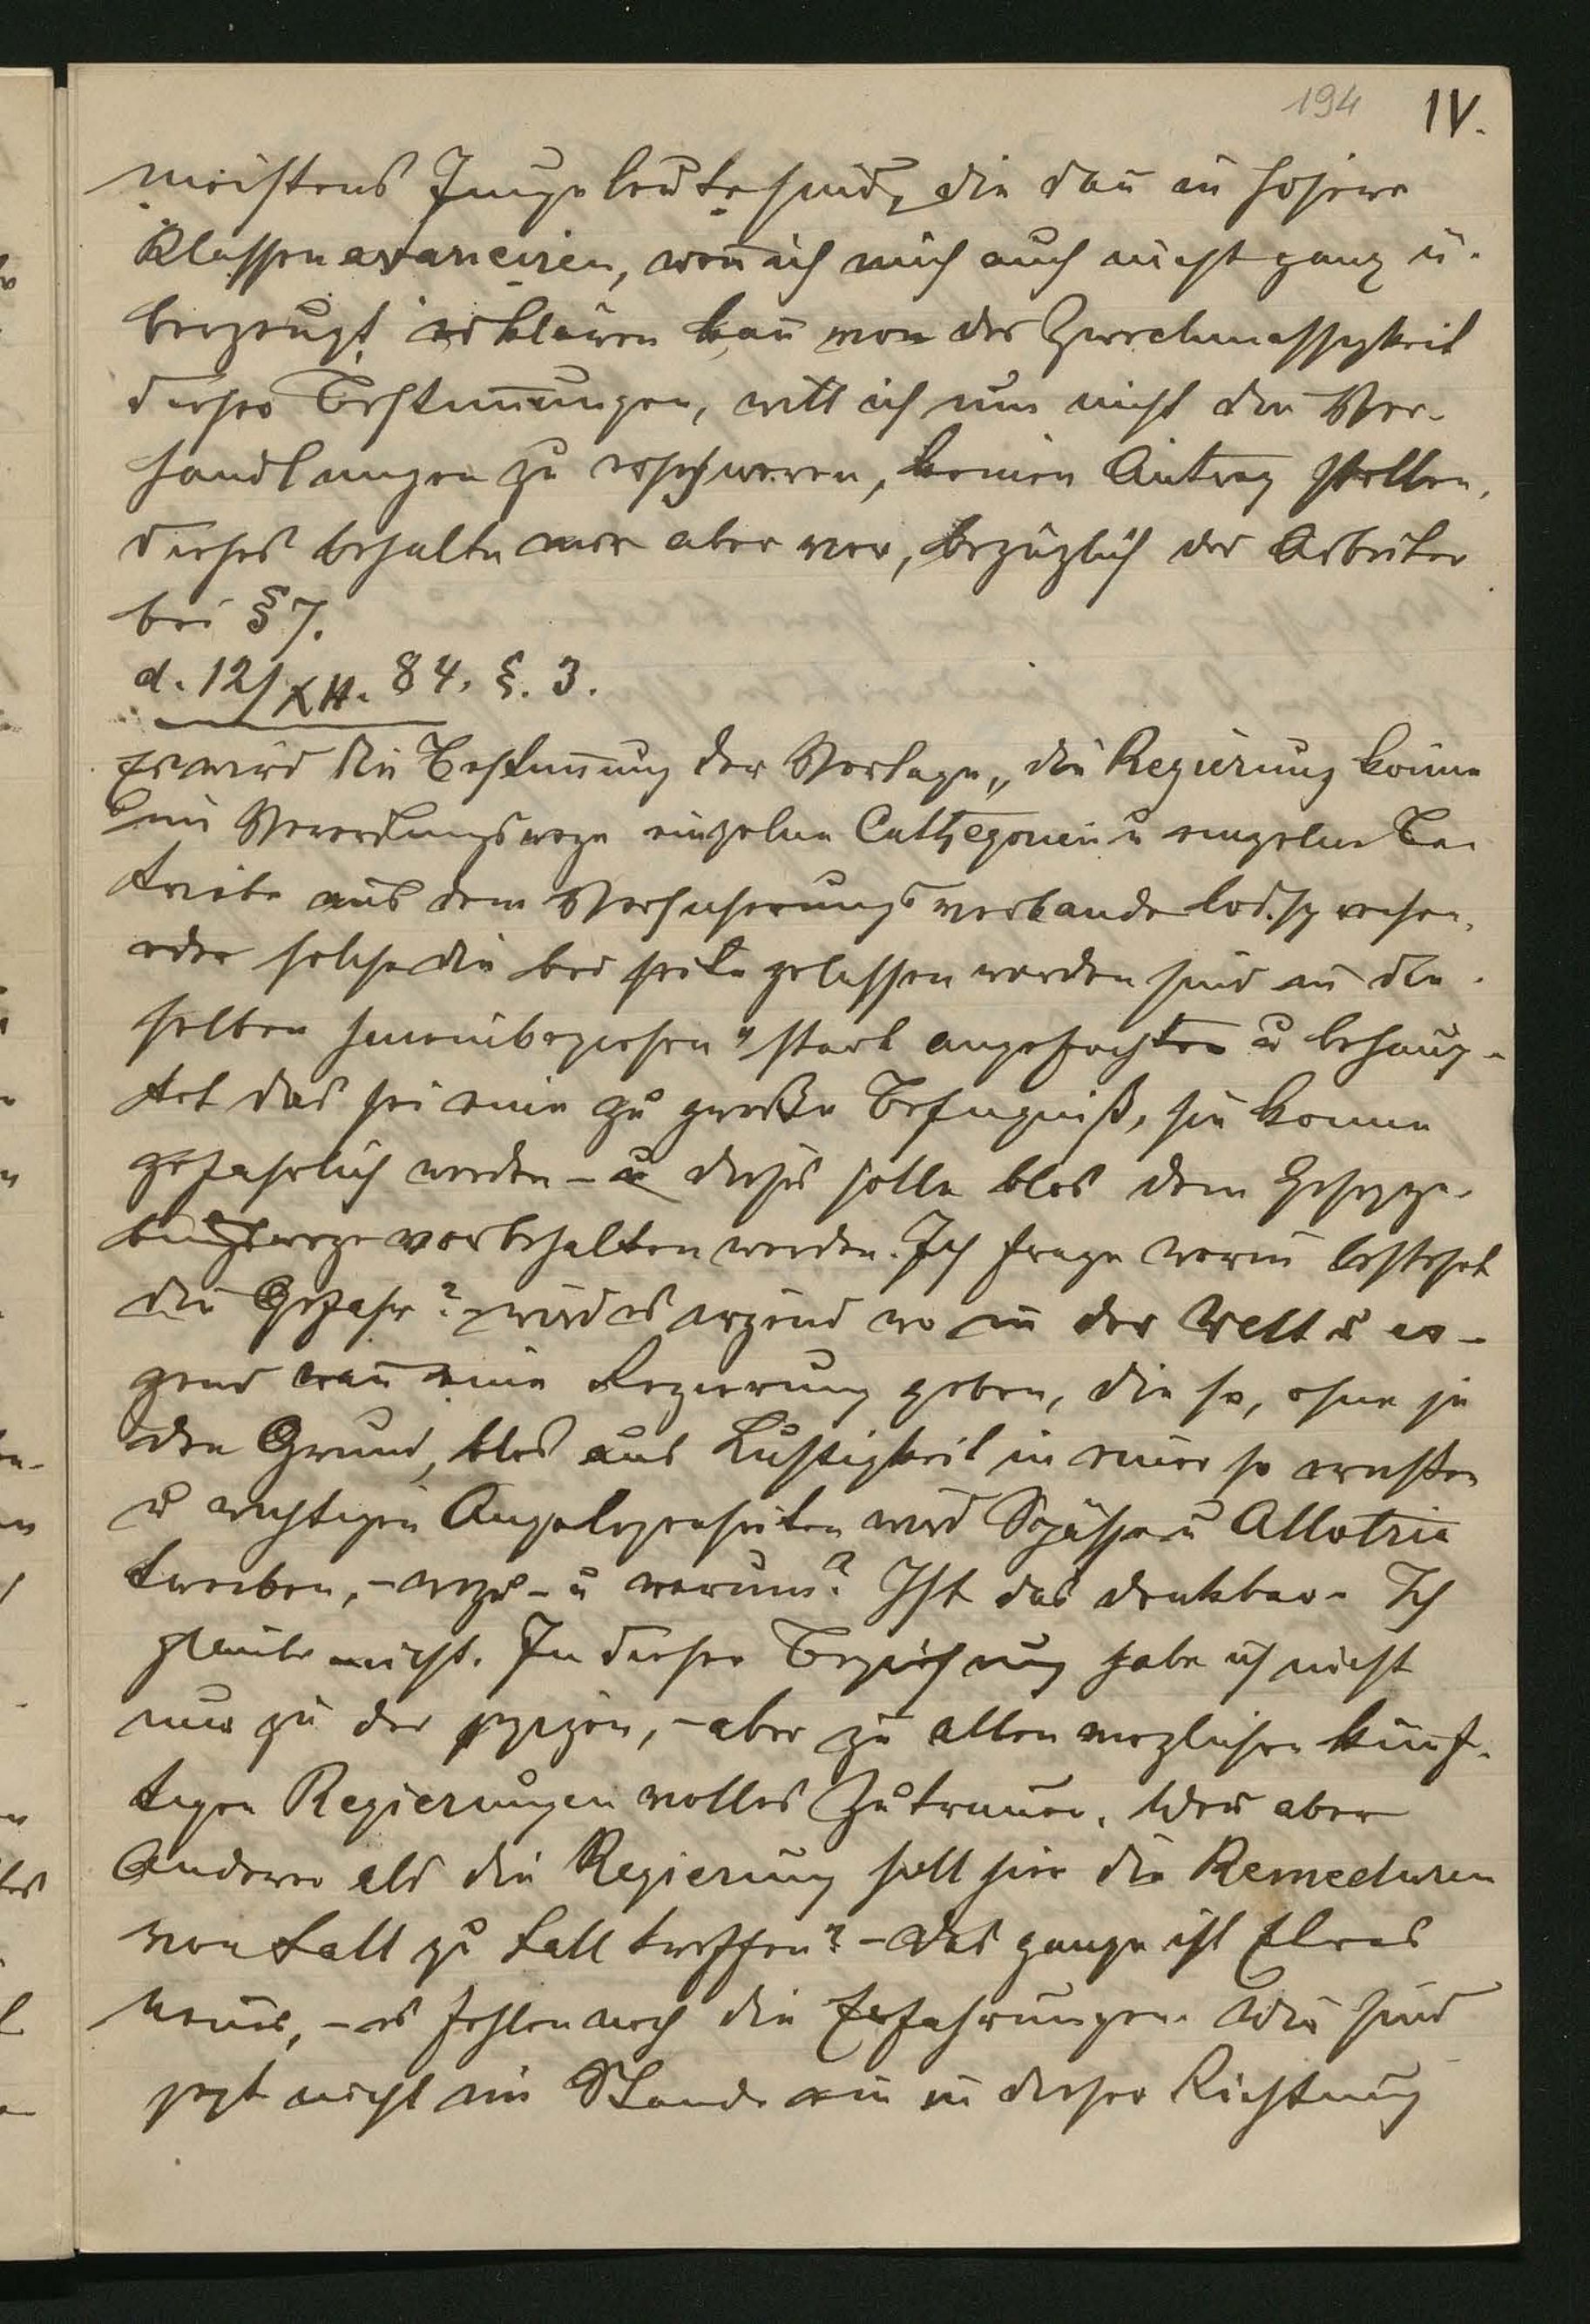 194 IV.
meistens Junge leute sind, die dañ in hohere
Klassen avanciren, weñ ich mich auch nicht ganz ü-
berzeugt erklären kañ von der Zweckmässigkeit
dieser Bestim̅ungen, will ich um nicht die Ver-
handlungen zu erschweren, keinen Antrag stellen,
dieses behalte mir aber vor, bezüglich der Arbeiter
bei § 7.
d. 12/XII. 84. §. 3.
Es wird die Bestim̅ung der Vorlage „die Regierung köne
im Verordnungswege einzelne Cathegorien u einzelne Be-
triebe aus dem Versicherungsverbande lossprechen,
oder solche die bei seite gelassen worden sind in den-
selben hineinbeziehen" stark angefochten u behaup-
tet das sei eine zu große Befugniß, sie könne
gefahrlich werden – u dieses solle blos dem Gesetzge-
bungswege vorbehalten werden. Ich frage worin bestehet
die Gefahr? wird es irgend wo in der Welt u ir-
gend wañ eine Regierung geben, die so, ohne je
den Grund, blos aus Lustigkeit in einer so ernsten
u wichtigen Angelegenheiten wird Spässe u Allotria
treiben, – wozu – u warum? Ist das denkbar. Ich
glaube nicht. In dieser Beziehung habe ich nicht
nur zu der jezigen, – aber zu allen moglichen künf-
tigen Regierungen volles Zutrauen. Wer aber
Anderer als die Regierung soll hier die Remeduren
von Fall zu Fall treffen? – Das ganze ist Etwas
neues, – es fehlen noch die Erfahrungen. Wir sind
jezt nicht im Stande in dieser Richtung